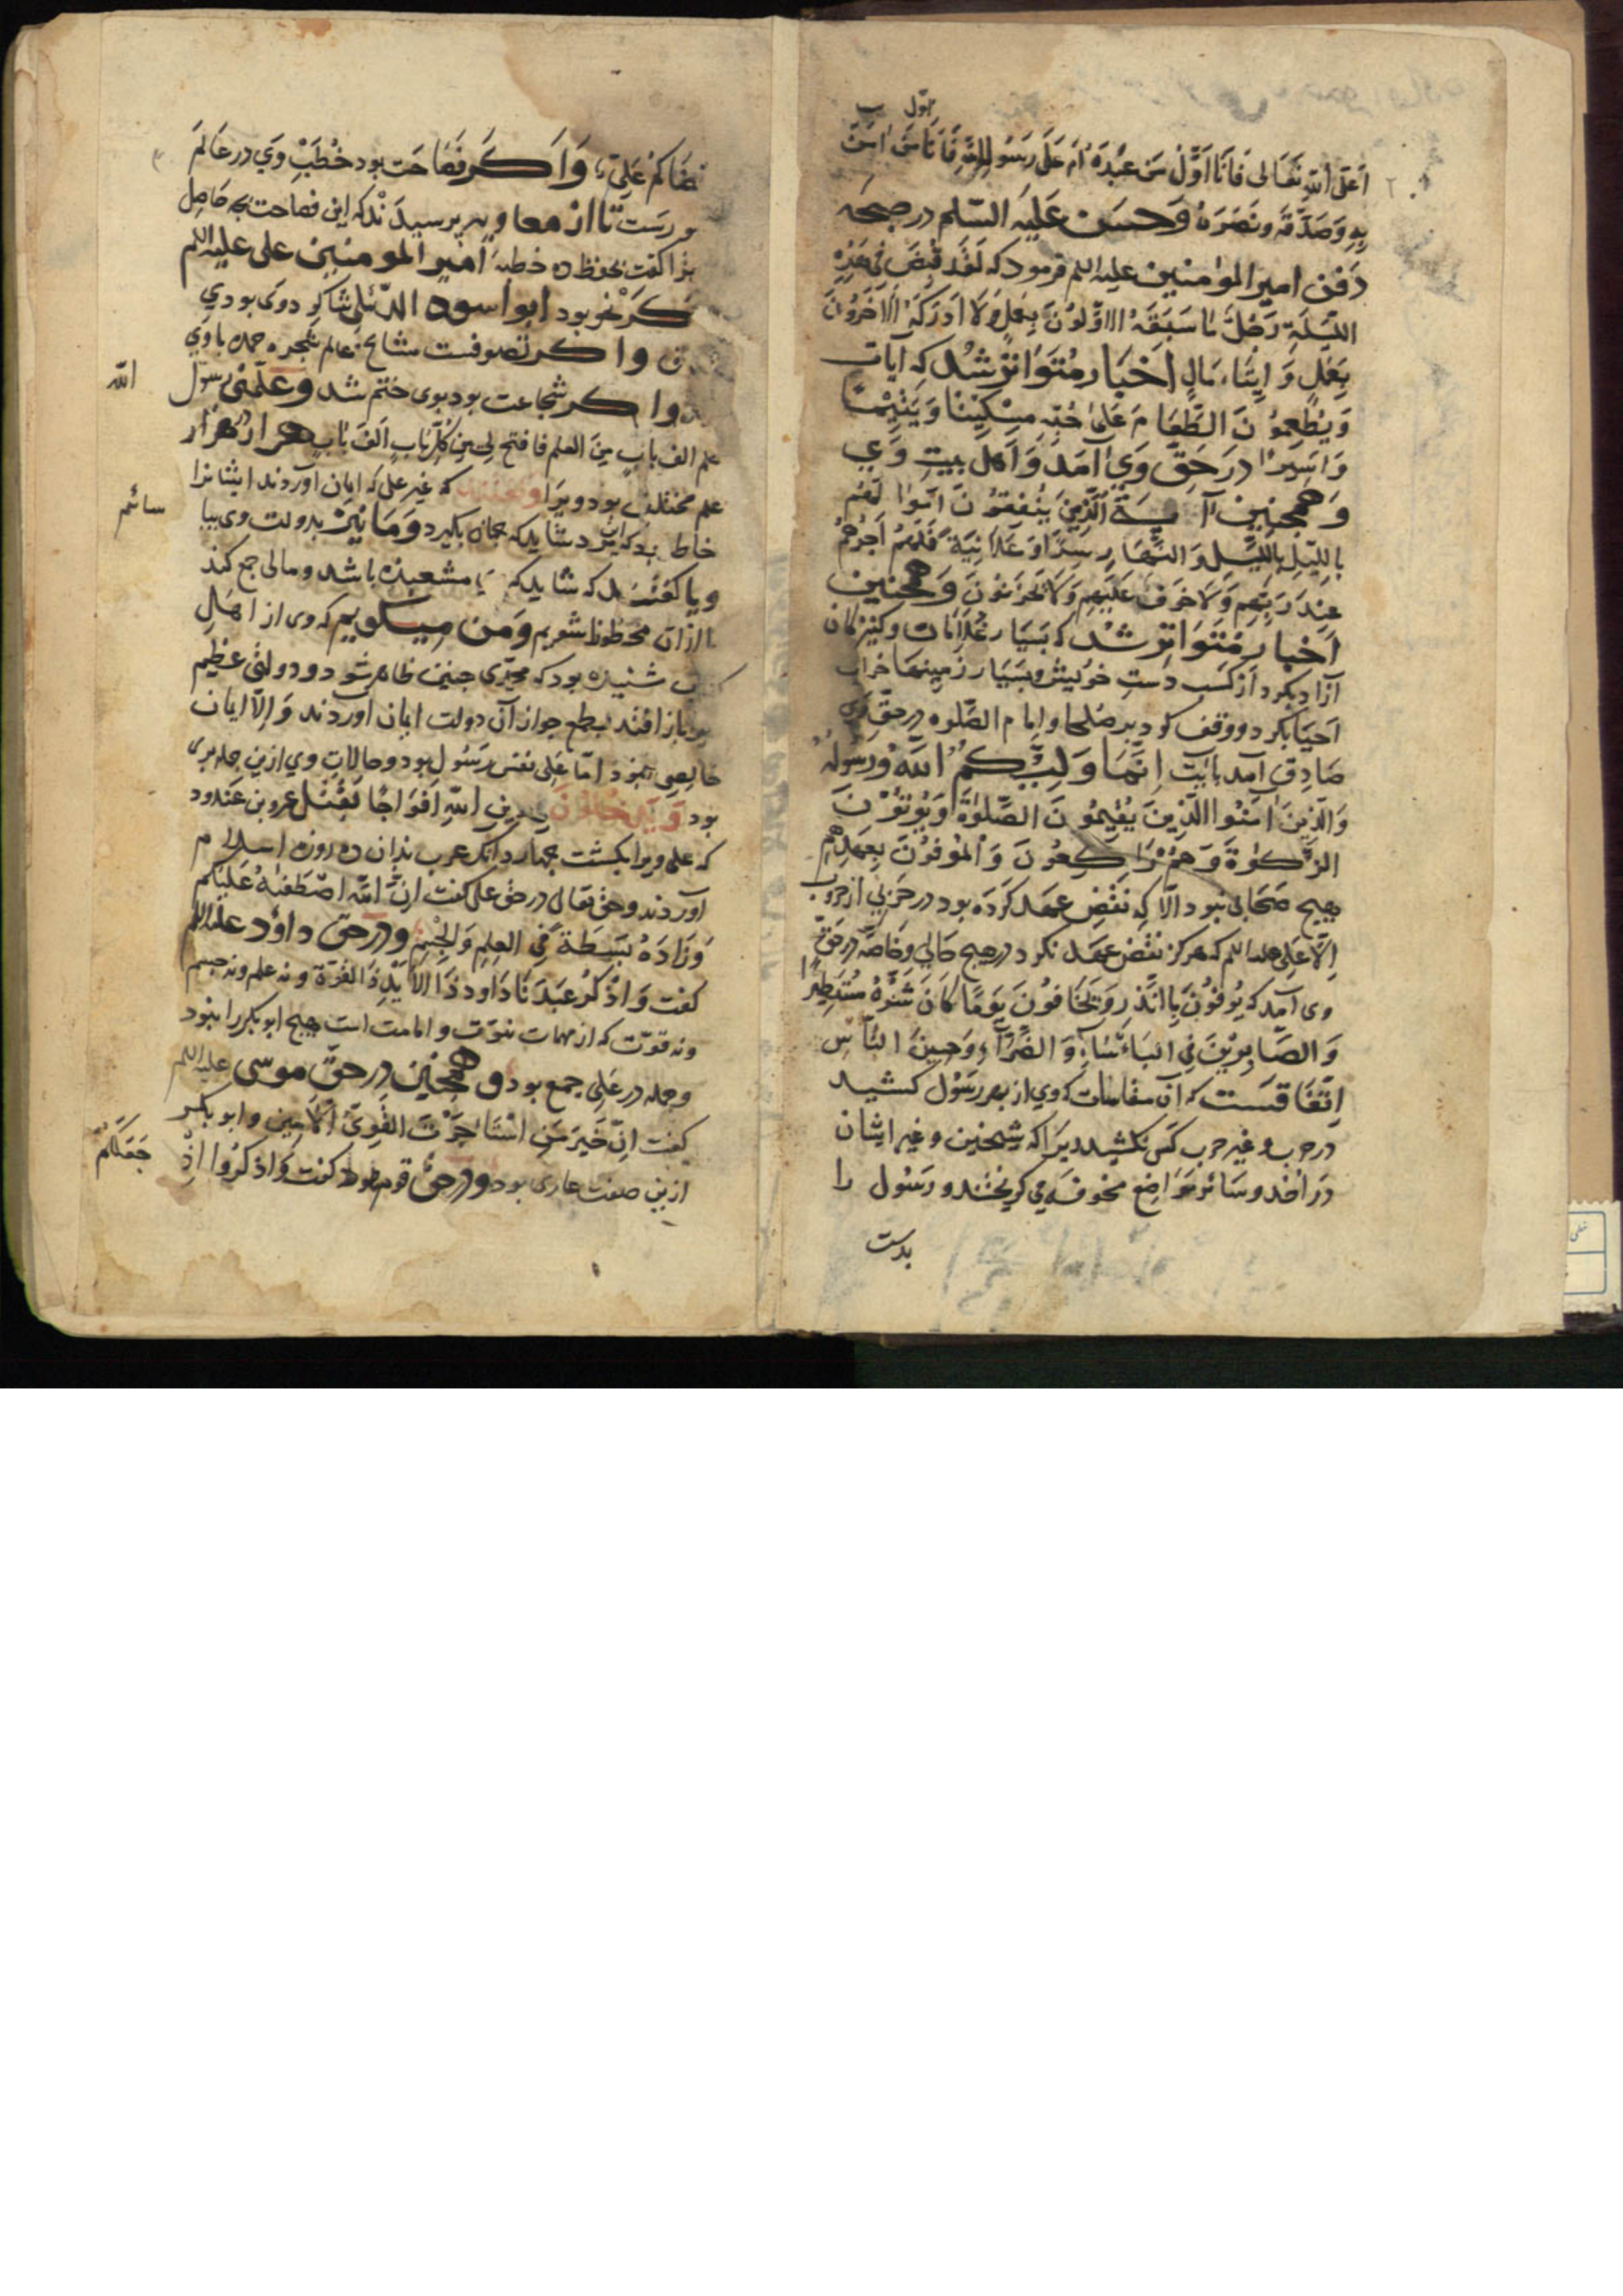 أعلى الله تعالى فانا اول من عبده ام على رسول الله فانا من امن
به وصدقه ونصره وحسن عليه السلم در صبحه
دفن امير المؤمنين عليه السلم فرمود كه لقد قبض في هذه
الليلة رجل ما سبقه الاولون بعمل ولا ادركه الآخرون
بعمل و ايتاء مال اخبار متواتر شد كه آيات
ويطعمون الطعام على حبه مسكينا ويتيما
واسيرا در حق وي آمد و اهل بيت وي
وهمچنين آيـة الذين ينفقون اموالهم
بالليل والنهار سرا وعلانية فلهم اجرهم
عند ربهم ولا خوف عليهم ولا هم يحزنون وهمچنين
اخبار متواتر شد كه بسيار غلامان وكنيزكان
آزاد بكرد از كسب دست خويش وبسيار زمينها خراب
احيا بكرد ووقف كرد بر صلحا وامام الصلوه در حق وى
صادق آمد بآيت انما وليكم الله ورسوله
والذين امنوا الذين يقيمون الصلوة ويؤتون
الزكوة وهم راكعون والموفون بعهدهم
هيچ صحابي نبود الا كه نقض عهد كرده بود در حربي از حروب
الا على عليه السلم كه هركز نقض عهد نكرد در هيچ حالي وخاصه در حق
وى آمد كه يوفون بالنذر ويخافون يوما كان شره مستطيرا
والصابرين في البأساء والضراء وحين البأس
اتفاقست كه آن مقاسات كه وي از بهر رسول كشيد
در حرب وغير حرب كس نكشيد زيرا كه شيخين وغير ايشان
در احد و سائر مواضع مخوفه مي كريختند و رسول را
بدست
قضاكم على واكر فصاحت بود خطب وي در عالم
ورست تا از معاويه پرسيدند كه اين فصاحت حاصل
كفت بحفظ ده خطبه امير المومنين على عليه السلم
كر نحو بود ابو اسود الدئلى شاكرد وى بودي
واكر تصوفست مشايخ عالم شجره جمله باوي
واكر شجاعت بود بوى ختم شد وعلمنى رسول
الله
علم الف باب من العلم فافتح لى من كل باب الف باب هزار هزار
علم مختلف بود ويرا وبعضند كه غير على كه ايمان آوردند ايشانرا
خاطر بدكه اين مرد شايد كه جهان بكيرد وما نيز بدولت وى بيا
سائم
ويا كفتند كه شايد كه مشعبذه باشد ومالى جمع كند
ما از آن محظوظ شويم ومن ميكويم كه وى از اهل
كتاب شنيده بود كه محمدى چنين ظاهر شود و دولتى عظيم
بوى باز افتد بطمع جواز آن دولت ايمان آوردند والا ايمان
خالص نبود اما على نفس رسول بود وحالات وي ازين جمله برى
بود ويدخلون في دين الله افواجا بقتل عمرو بن عبدود
كه على ويرا بكشت چهار دانك عرب بدان ده روزه اسلام
آوردند وحق تعالى در حق على كفت ان الله اصطفيه عليكم
وزاده بسطة في العلم والجسم ودر حق داود عليه السلم
كفت واذكر عبدنا داود ذا الأيد ذا القوة ونه علم ونه جسم
ونه قوت كه از مهمات نبوت و امامت است هيچ ابوبكر را نبود
وجمله در على جمع بود وهمچنين در حق موسى عليه السلم
كفت ان خير من استأجرت القوى الأمين وابو بكر
ازين صفت عارى بود ودر حق قوم هود كفت واذكروا اذ
جعلكم